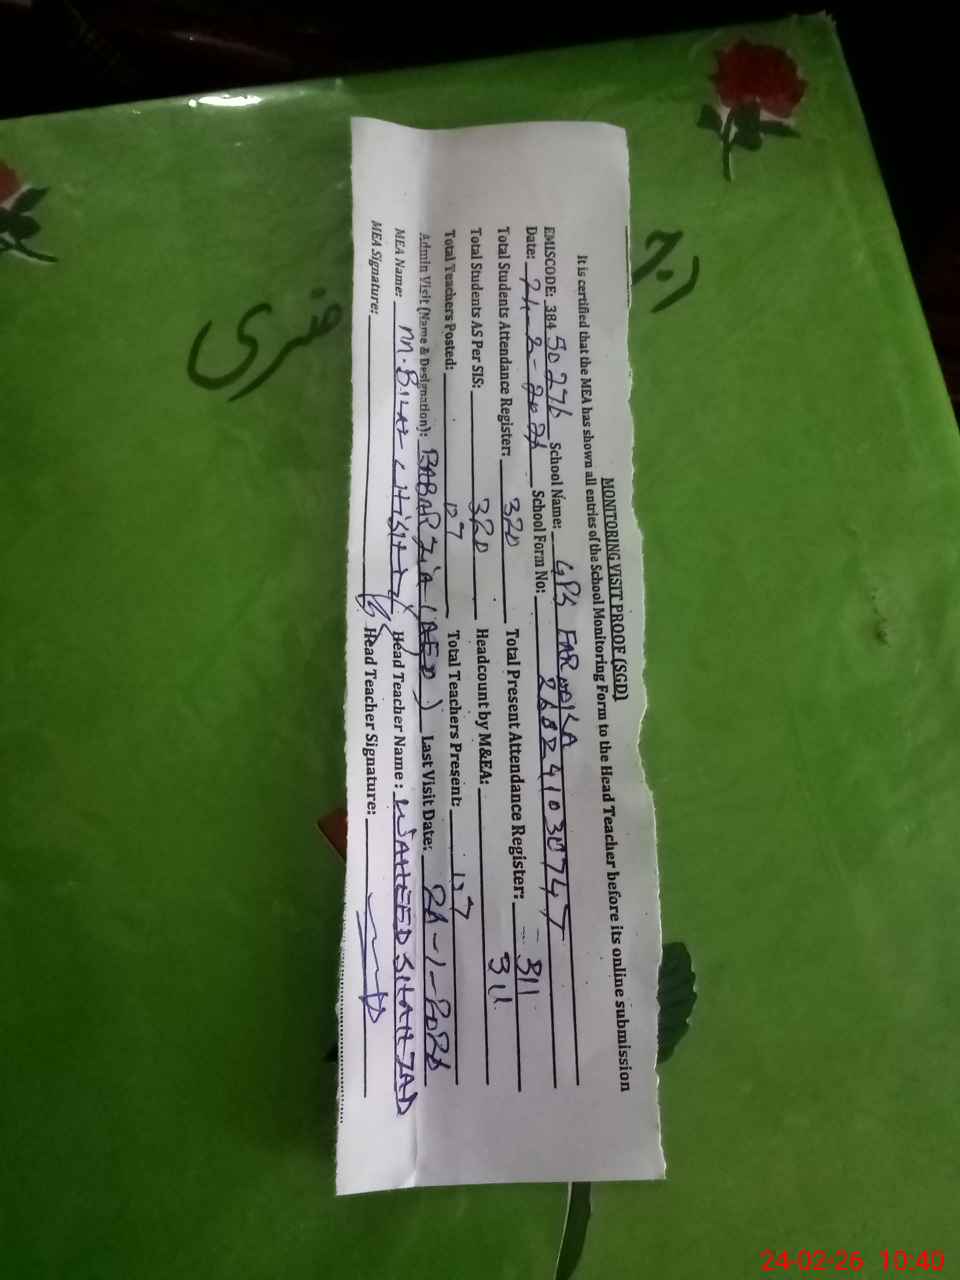 MONITORING VISIT PROOF (SGD)
It is certified that the MEA has shown all entries of the School Monitoring Form to the Head Teacher before its online submission
EMISCODE: 38450276 School Name: GPS FAROOKA
Date: 24-2-2026 School Form No:
Total Students Attendance Register: 320 Total Present Attendance Register: 311
Total Students AS Per SIS: 320 Headcount by M&EA: 311
Total Teachers Posted: 07 Total Teachers Present: 07
Admin Visit (Name & Designation): BABAR ZIA (AEO) Last Visit Date:
MEA Name: M. BILAL CHISHTY Head Teacher Name: WAHEED SHAHZAD
MEA Signature: Head Teacher Signature:
حاضری
24-02-26 10:40